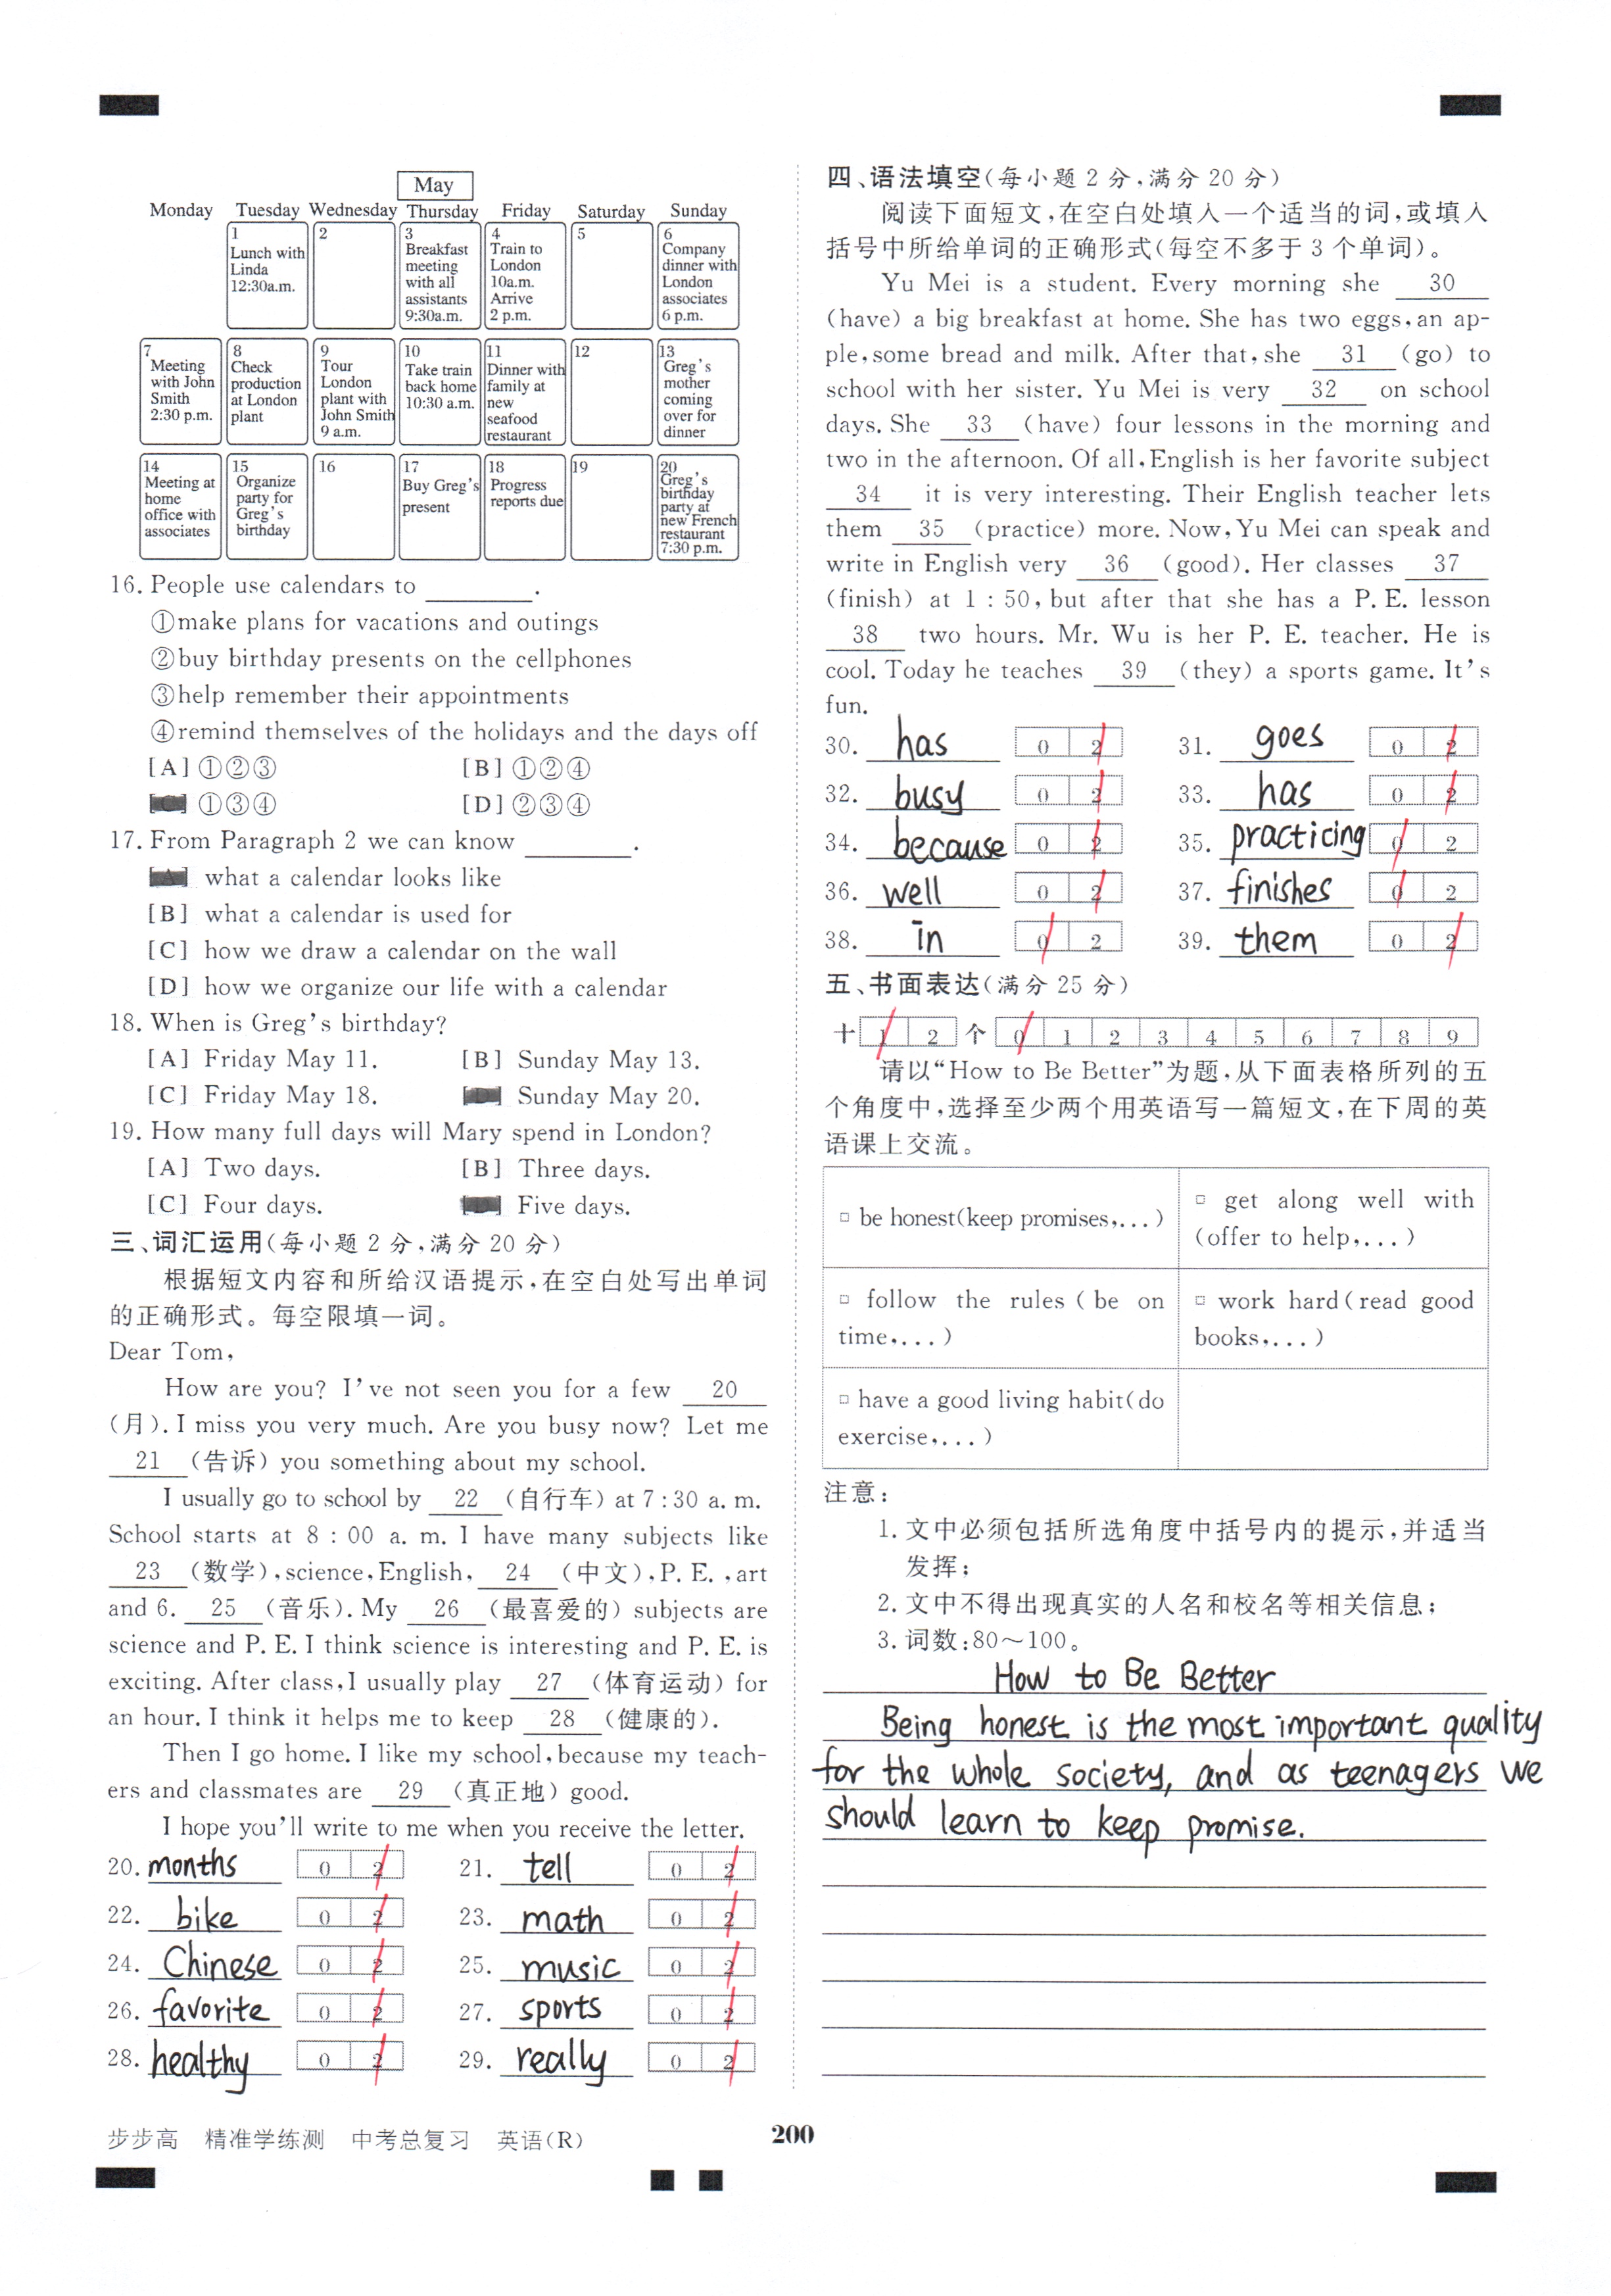 May
Monday Tuesday Wednesday Thursday Friday Saturday Sunday
1 Lunch with Linda 12:30a.m.
2
3 Breakfast meeting with all assistants 9:30a.m.
4 Train to London 10a.m. Arrive 2 p.m.
5
6 Company dinner with London associates 6 p.m.
7 Meeting with John Smith 2:30 p.m.
8 Check production at London plant
9 Tour London plant with John Smith 9 a.m.
10 Take train back home 10:30 a.m.
11 Dinner with family at new seafood restaurant
12
13 Greg's mother coming over for dinner
14 Meeting at home office with associates
15 Organize party for Greg's birthday
16
17 Buy Greg's present
18 Progress reports due
19
20 Greg's birthday party at new French restaurant 7:30 p.m.
16. People use calendars to ________.
①make plans for vacations and outings
②buy birthday presents on the cellphones
③help remember their appointments
④remind themselves of the holidays and the days off
[A] ①②③ [B] ①②④
[C] ①③④ [D] ②③④
17. From Paragraph 2 we can know ________.
[A] what a calendar looks like
[B] what a calendar is used for
[C] how we draw a calendar on the wall
[D] how we organize our life with a calendar
18. When is Greg's birthday?
[A] Friday May 11. [B] Sunday May 13.
[C] Friday May 18. [D] Sunday May 20.
19. How many full days will Mary spend in London?
[A] Two days. [B] Three days.
[C] Four days. [D] Five days.
三、词汇运用(每小题 2 分,满分 20 分)
根据短文内容和所给汉语提示,在空白处写出单词
的正确形式。每空限填一词。
Dear Tom,
How are you? I've not seen you for a few 20
(月). I miss you very much. Are you busy now? Let me
21 (告诉) you something about my school.
I usually go to school by 22 (自行车) at 7:30 a. m.
School starts at 8:00 a. m. I have many subjects like
23 (数学), science, English, 24 (中文), P. E. , art
and 6. 25 (音乐). My 26 (最喜爱的) subjects are
science and P. E. I think science is interesting and P. E. is
exciting. After class, I usually play 27 (体育运动) for
an hour. I think it helps me to keep 28 (健康的).
Then I go home. I like my school, because my teach-
ers and classmates are 29 (真正地) good.
I hope you'll write to me when you receive the letter.
20. months 0 2 21. tell 0 2
22. bike 0 2 23. math 0 2
24. Chinese 0 2 25. music 0 2
26. favorite 0 2 27. sports 0 2
28. healthy 0 2 29. really 0 2
四、语法填空(每小题 2 分,满分 20 分)
阅读下面短文,在空白处填入一个适当的词,或填入
括号中所给单词的正确形式(每空不多于 3 个单词)。
Yu Mei is a student. Every morning she 30
(have) a big breakfast at home. She has two eggs, an ap-
ple, some bread and milk. After that, she 31 (go) to
school with her sister. Yu Mei is very 32 on school
days. She 33 (have) four lessons in the morning and
two in the afternoon. Of all, English is her favorite subject
34 it is very interesting. Their English teacher lets
them 35 (practice) more. Now, Yu Mei can speak and
write in English very 36 (good). Her classes 37
(finish) at 1:50, but after that she has a P. E. lesson
38 two hours. Mr. Wu is her P. E. teacher. He is
cool. Today he teaches 39 (they) a sports game. It's
fun.
30. has 0 2 31. goes 0 2
32. busy 0 2 33. has 0 2
34. because 0 2 35. practicing 0 2
36. well 0 2 37. finishes 0 2
38. in 0 2 39. them 0 2
五、书面表达(满分 25 分)
十 1 2 个 0 1 2 3 4 5 6 7 8 9
请以“How to Be Better”为题,从下面表格所列的五
个角度中,选择至少两个用英语写一篇短文,在下周的英
语课上交流。
□ be honest(keep promises,...)
□ get along well with
(offer to help,...)
□ follow the rules (be on
time,...)
□ work hard(read good
books,...)
□ have a good living habit(do
exercise,...)
注意:
1. 文中必须包括所选角度中括号内的提示,并适当
发挥;
2. 文中不得出现真实的人名和校名等相关信息;
3. 词数:80～100。
How to Be Better
Being honest is the most important quality
for the whole society, and as teenagers we
should learn to keep promise.
步步高 精准学练测 中考总复习 英语(R)
200